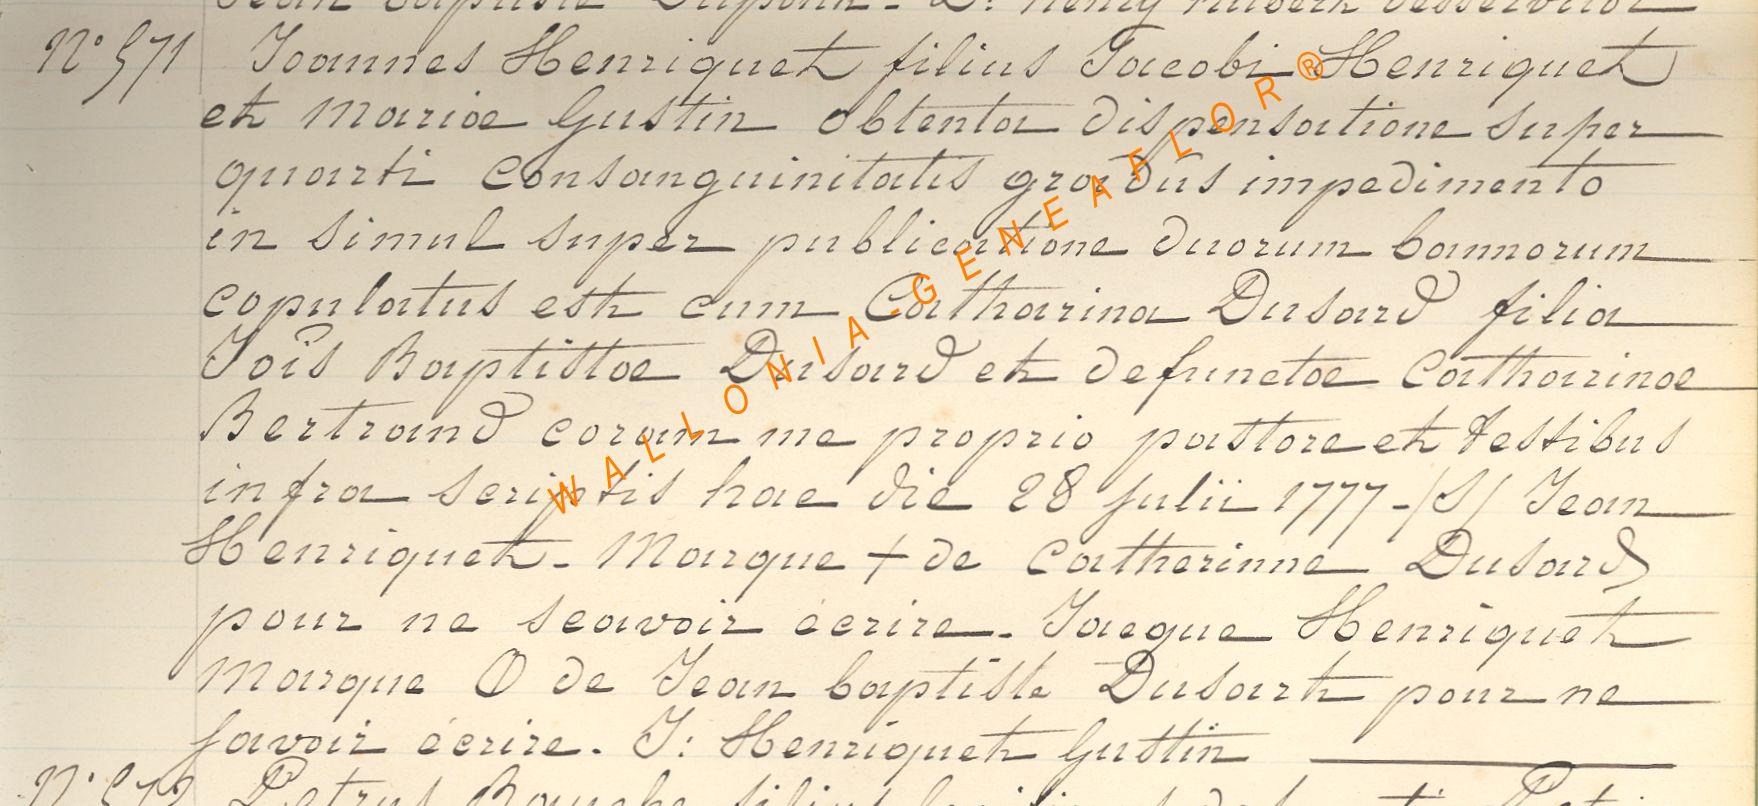 Jean Baptiste Dupont - D: Remy Hubert desservitor
N° 571 Joannes Henriquet filius Jacobi Henriquet
et Mariae Gustin obtenta dispensatione super
quarti consanguinitatis gradus impedimento
in simul super publicatione duorum bannorum
copulatus est cum Catharina Dusard filia
Jois Baptistae Dusard et defunctae Catharinae
Bertrand coram me proprio pastore et testibus
infra scriptis hac die 28 julii 1777 - (S) Jean
Henriquet - Marque + de Catherinne Dusard
pour ne scavoir écrire - Jacque Henriquet
Marque O de Jean baptiste Dusart pour ne
savoir écrire. J: Henriquet Gustin
N° 572 Petrus
WALLONIA-GENEAFLOR®